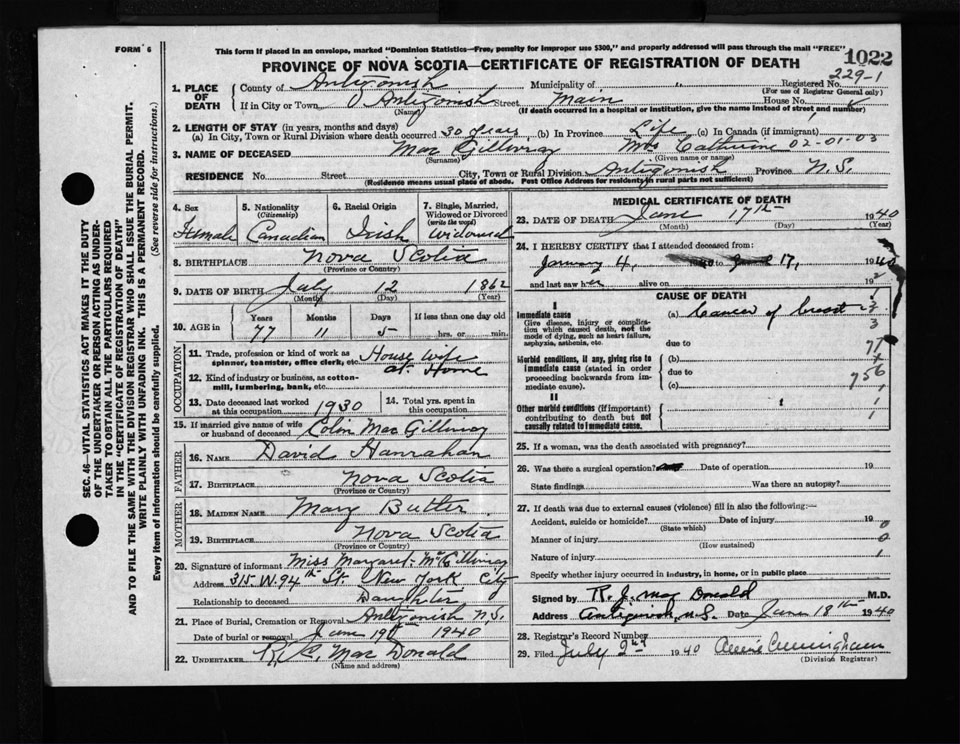 FORM 6
This form if placed in an envelope, marked "Dominion Statistics—Free, penalty for improper use $300," and properly addressed will pass through the mail "FREE"
1022
PROVINCE OF NOVA SCOTIA—CERTIFICATE OF REGISTRATION OF DEATH
229-1
SEC. 46—VITAL STATISTICS ACT MAKES IT THE DUTY
OF THE UNDERTAKER OR PERSON ACTING AS UNDER-
TAKER TO OBTAIN ALL THE PARTICULARS REQUIRED
IN THE "CERTIFICATE OF REGISTRATION OF DEATH"
AND TO FILE THE SAME WITH THE DIVISION REGISTRAR WHO SHALL ISSUE THE BURIAL PERMIT.
WRITE PLAINLY WITH UNFADING INK. THIS IS A PERMANENT RECORD.
Every item of Information should be carefully supplied. (See reverse side for instructions.)
1. PLACE OF DEATH
County of Antigonish Municipality of " Registered No.
(For use of Registrar General only)
If in City or Town Antigonish Street Main House No.
(Name) (If death occurred in a hospital or institution, give the name instead of street, and number)
2. LENGTH OF STAY (in years, months and days)
(a) In City, Town or Rural Division where death occurred 30 years (b) In Province Life (c) In Canada (if immigrant)
3. NAME OF DECEASED Mac Gillivray Mrs Catherine 02-01-03
(Surname) (Given name or names)
RESIDENCE No. Street City, Town or Rural Division Antigonish Province N.S.
(Residence means usual place of abode. Post Office Address for residents in rural parts not sufficient)
4. Sex Female
5. Nationality (Citizenship) Canadian
6. Racial Origin Irish
7. Single, Married, Widowed or Divorced (write the word) Widowed
8. BIRTHPLACE Nova Scotia
(Province or Country)
9. DATE OF BIRTH July 12 1862
(Month) (Day) (Year)
10. AGE in Years Months Days If less than one day old
77 11 5 hrs. or min.
OCCUPATION
11. Trade, profession or kind of work as spinner, teamster, office clerk, etc. House wife
12. Kind of industry or business, as cotton-mill, lumbering, bank, etc. at Home
13. Date deceased last worked at this occupation 1930
14. Total yrs. spent in this occupation
15. If married give name of wife or husband of deceased Colin Mac Gillivray
FATHER
16. NAME David Hanrahan
17. BIRTHPLACE Nova Scotia
(Province or Country)
MOTHER
18. MAIDEN NAME Mary Butler
19. BIRTHPLACE Nova Scotia
(Province or Country)
20. Signature of informant Miss Margaret McGillivray
Address 315 W. 94th St. New York City
Relationship to deceased Daughter
21. Place of Burial, Cremation or Removal Antigonish N.S.
Date of burial or removal June 19th 1940
22. UNDERTAKER Mac Donald
(Name and address)
MEDICAL CERTIFICATE OF DEATH
23. DATE OF DEATH June 17th 1940
(Month) (Day) (Year)
24. I HEREBY CERTIFY that I attended deceased from:
January 4, 1940 to June 17, 1940
and last saw her alive on 19
CAUSE OF DEATH
I
Immediate cause
Give disease, injury or complication which caused death, not the mode of dying, such as heart failure, asphyxia, asthenia, etc.
(a) Cancer of breast
due to
Morbid conditions, if any, giving rise to immediate cause (stated in order proceeding backwards from immediate cause).
(b)
due to
(c)
II
Other morbid conditions (if important) contributing to death but not causally related to immediate cause.
2
1
3
3
77
x
756
1
1
1
25. If a woman, was the death associated with pregnancy?
26. Was there a surgical operation? Date of operation 19
State findings Was there an autopsy?
27. If death was due to external causes (violence) fill in also the following:—
Accident, suicide or homicide? Date of injury 19
(State which)
Manner of injury 0
(How sustained) 0
Nature of injury 1
Specify whether injury occurred in industry, in home, or in public place
Signed by R. J. Mac Donald M.D.
Address Antigonish, N.S. Date June 18th 1940
28. Registrar's Record Number
29. Filed July 2nd 1940 Cunningham
(Division Registrar)